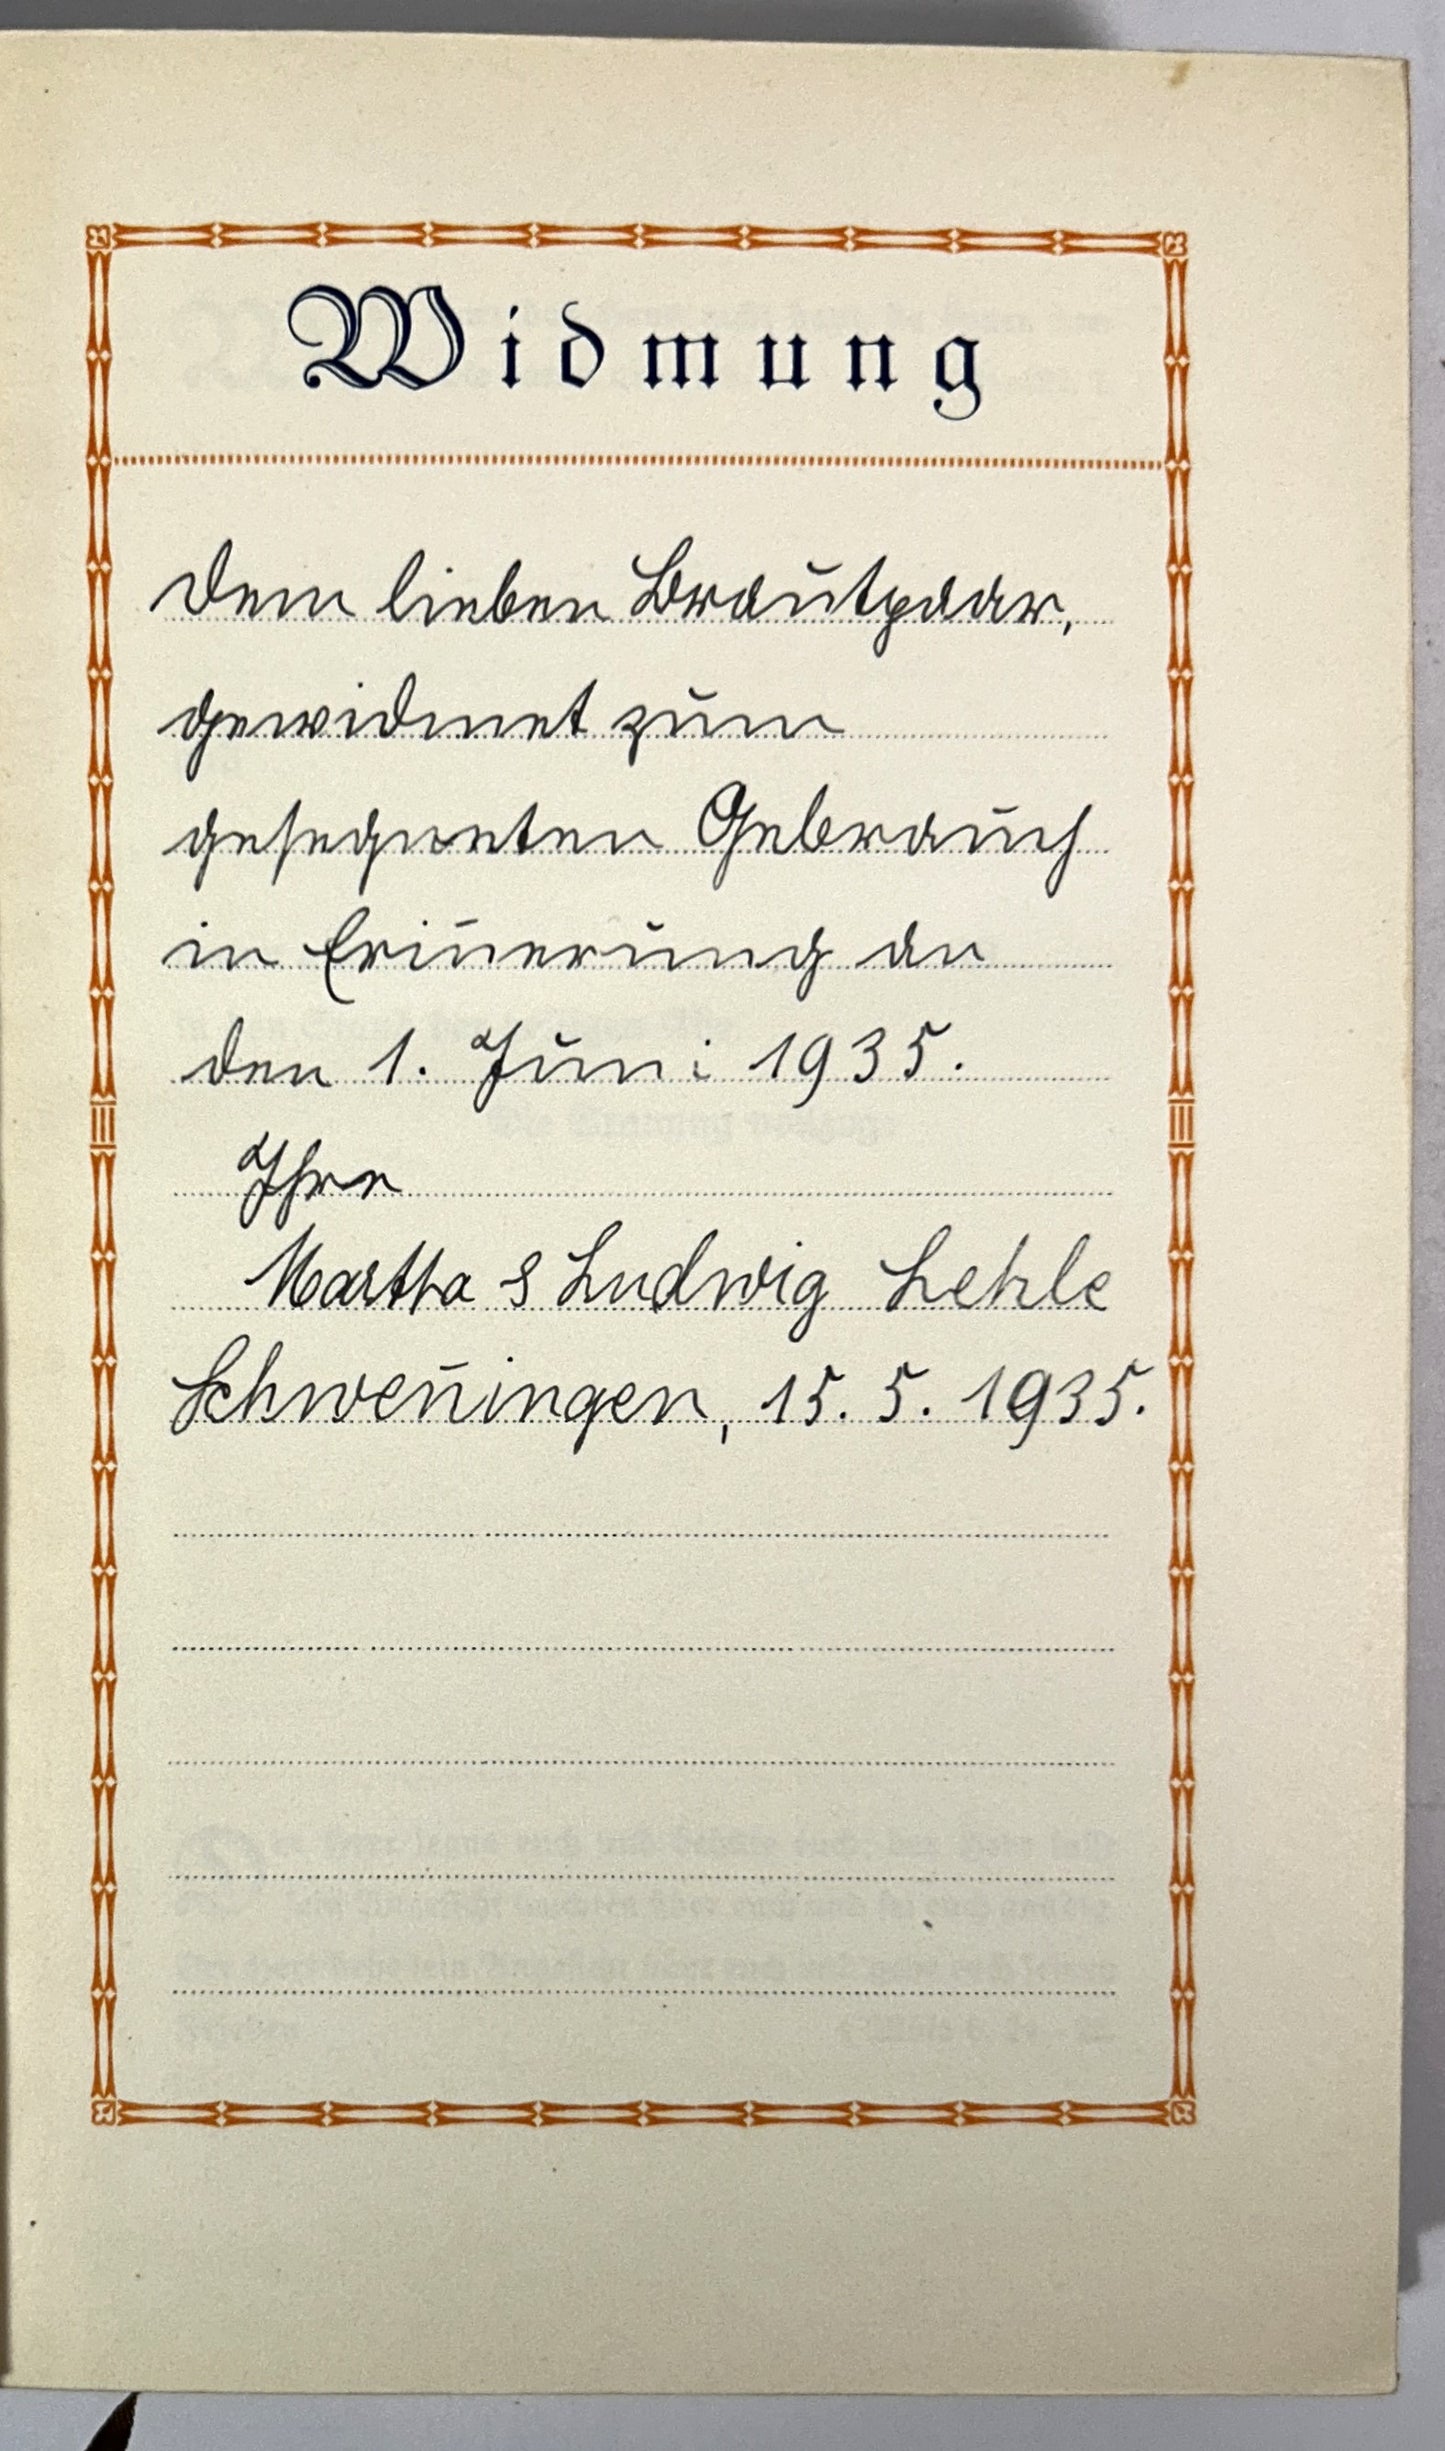 Widmung
Dem lieben Brautpaar,
gewidmet zum
gesegneten Gebrauch
in Erin̄erung an
den 1. Juni 1935.
Ihre
Martha & Ludwig Lehle
Schwen̄ingen, 15. 5. 1935.